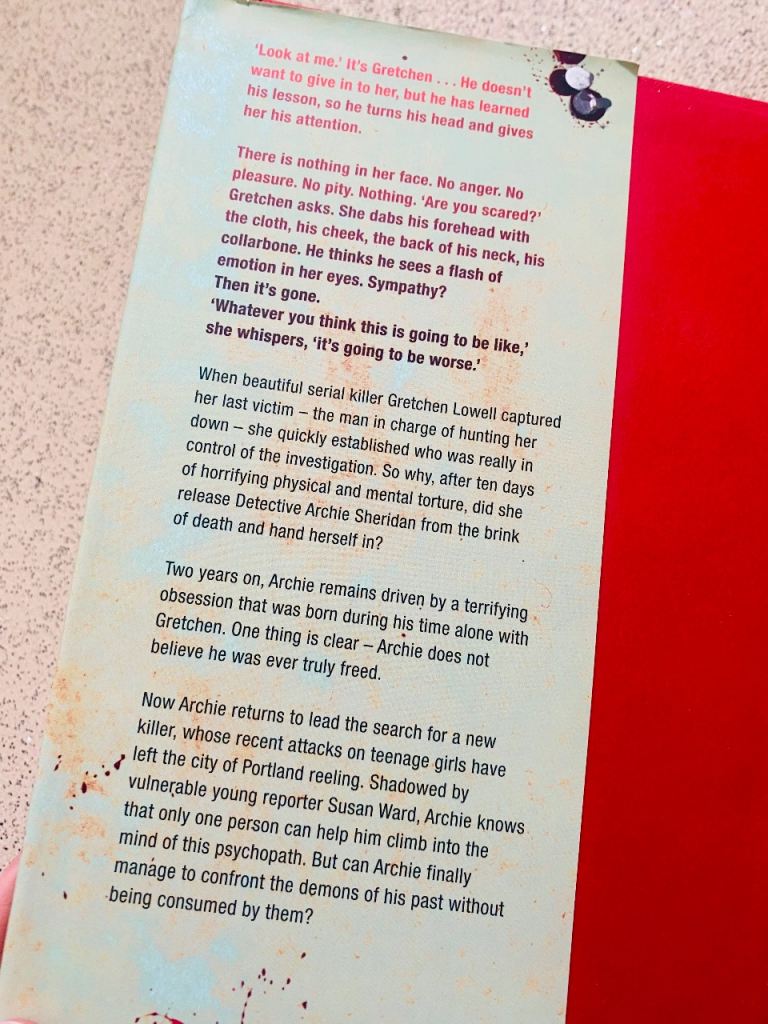 ‘Look at me.’ It’s Gretchen . . . He doesn’t
want to give in to her, but he has learned
his lesson, so he turns his head and gives
her his attention.
There is nothing in her face. No anger. No
pleasure. No pity. Nothing. ‘Are you scared?’
Gretchen asks. She dabs his forehead with
the cloth, his cheek, the back of his neck, his
collarbone. He thinks he sees a flash of
emotion in her eyes. Sympathy?
Then it’s gone.
‘Whatever you think this is going to be like,’
she whispers, ‘it’s going to be worse.’
When beautiful serial killer Gretchen Lowell captured
her last victim – the man in charge of hunting her
down – she quickly established who was really in
control of the investigation. So why, after ten days
of horrifying physical and mental torture, did she
release Detective Archie Sheridan from the brink
of death and hand herself in?
Two years on, Archie remains driven by a terrifying
obsession that was born during his time alone with
Gretchen. One thing is clear – Archie does not
believe he was ever truly freed.
Now Archie returns to lead the search for a new
killer, whose recent attacks on teenage girls have
left the city of Portland reeling. Shadowed by
vulnerable young reporter Susan Ward, Archie knows
that only one person can help him climb into the
mind of this psychopath. But can Archie finally
manage to confront the demons of his past without
being consumed by them?